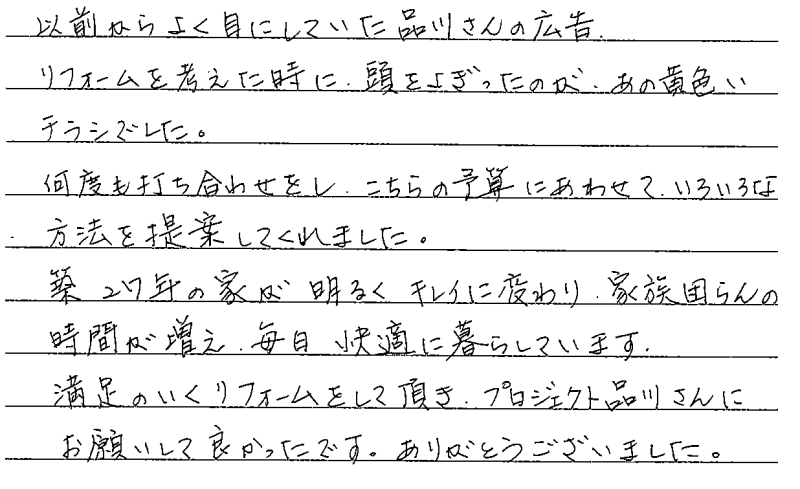 以前からよく目にしていた品川さんの広告.
リフォームを考えた時に、頭をよぎったのが、あの黄色い
チラシでした。
何度も打ち合わせをし、こちらの予算にあわせて、いろいろな
方法を提案してくれました。
築27年の家が明るくキレイに変わり、家族団らんの
時間が増え、毎日快適に暮らしています.
満足のいくリフォームをして頂き、プロジェクト品川さんに
お願いして良かったです。ありがとうございました。